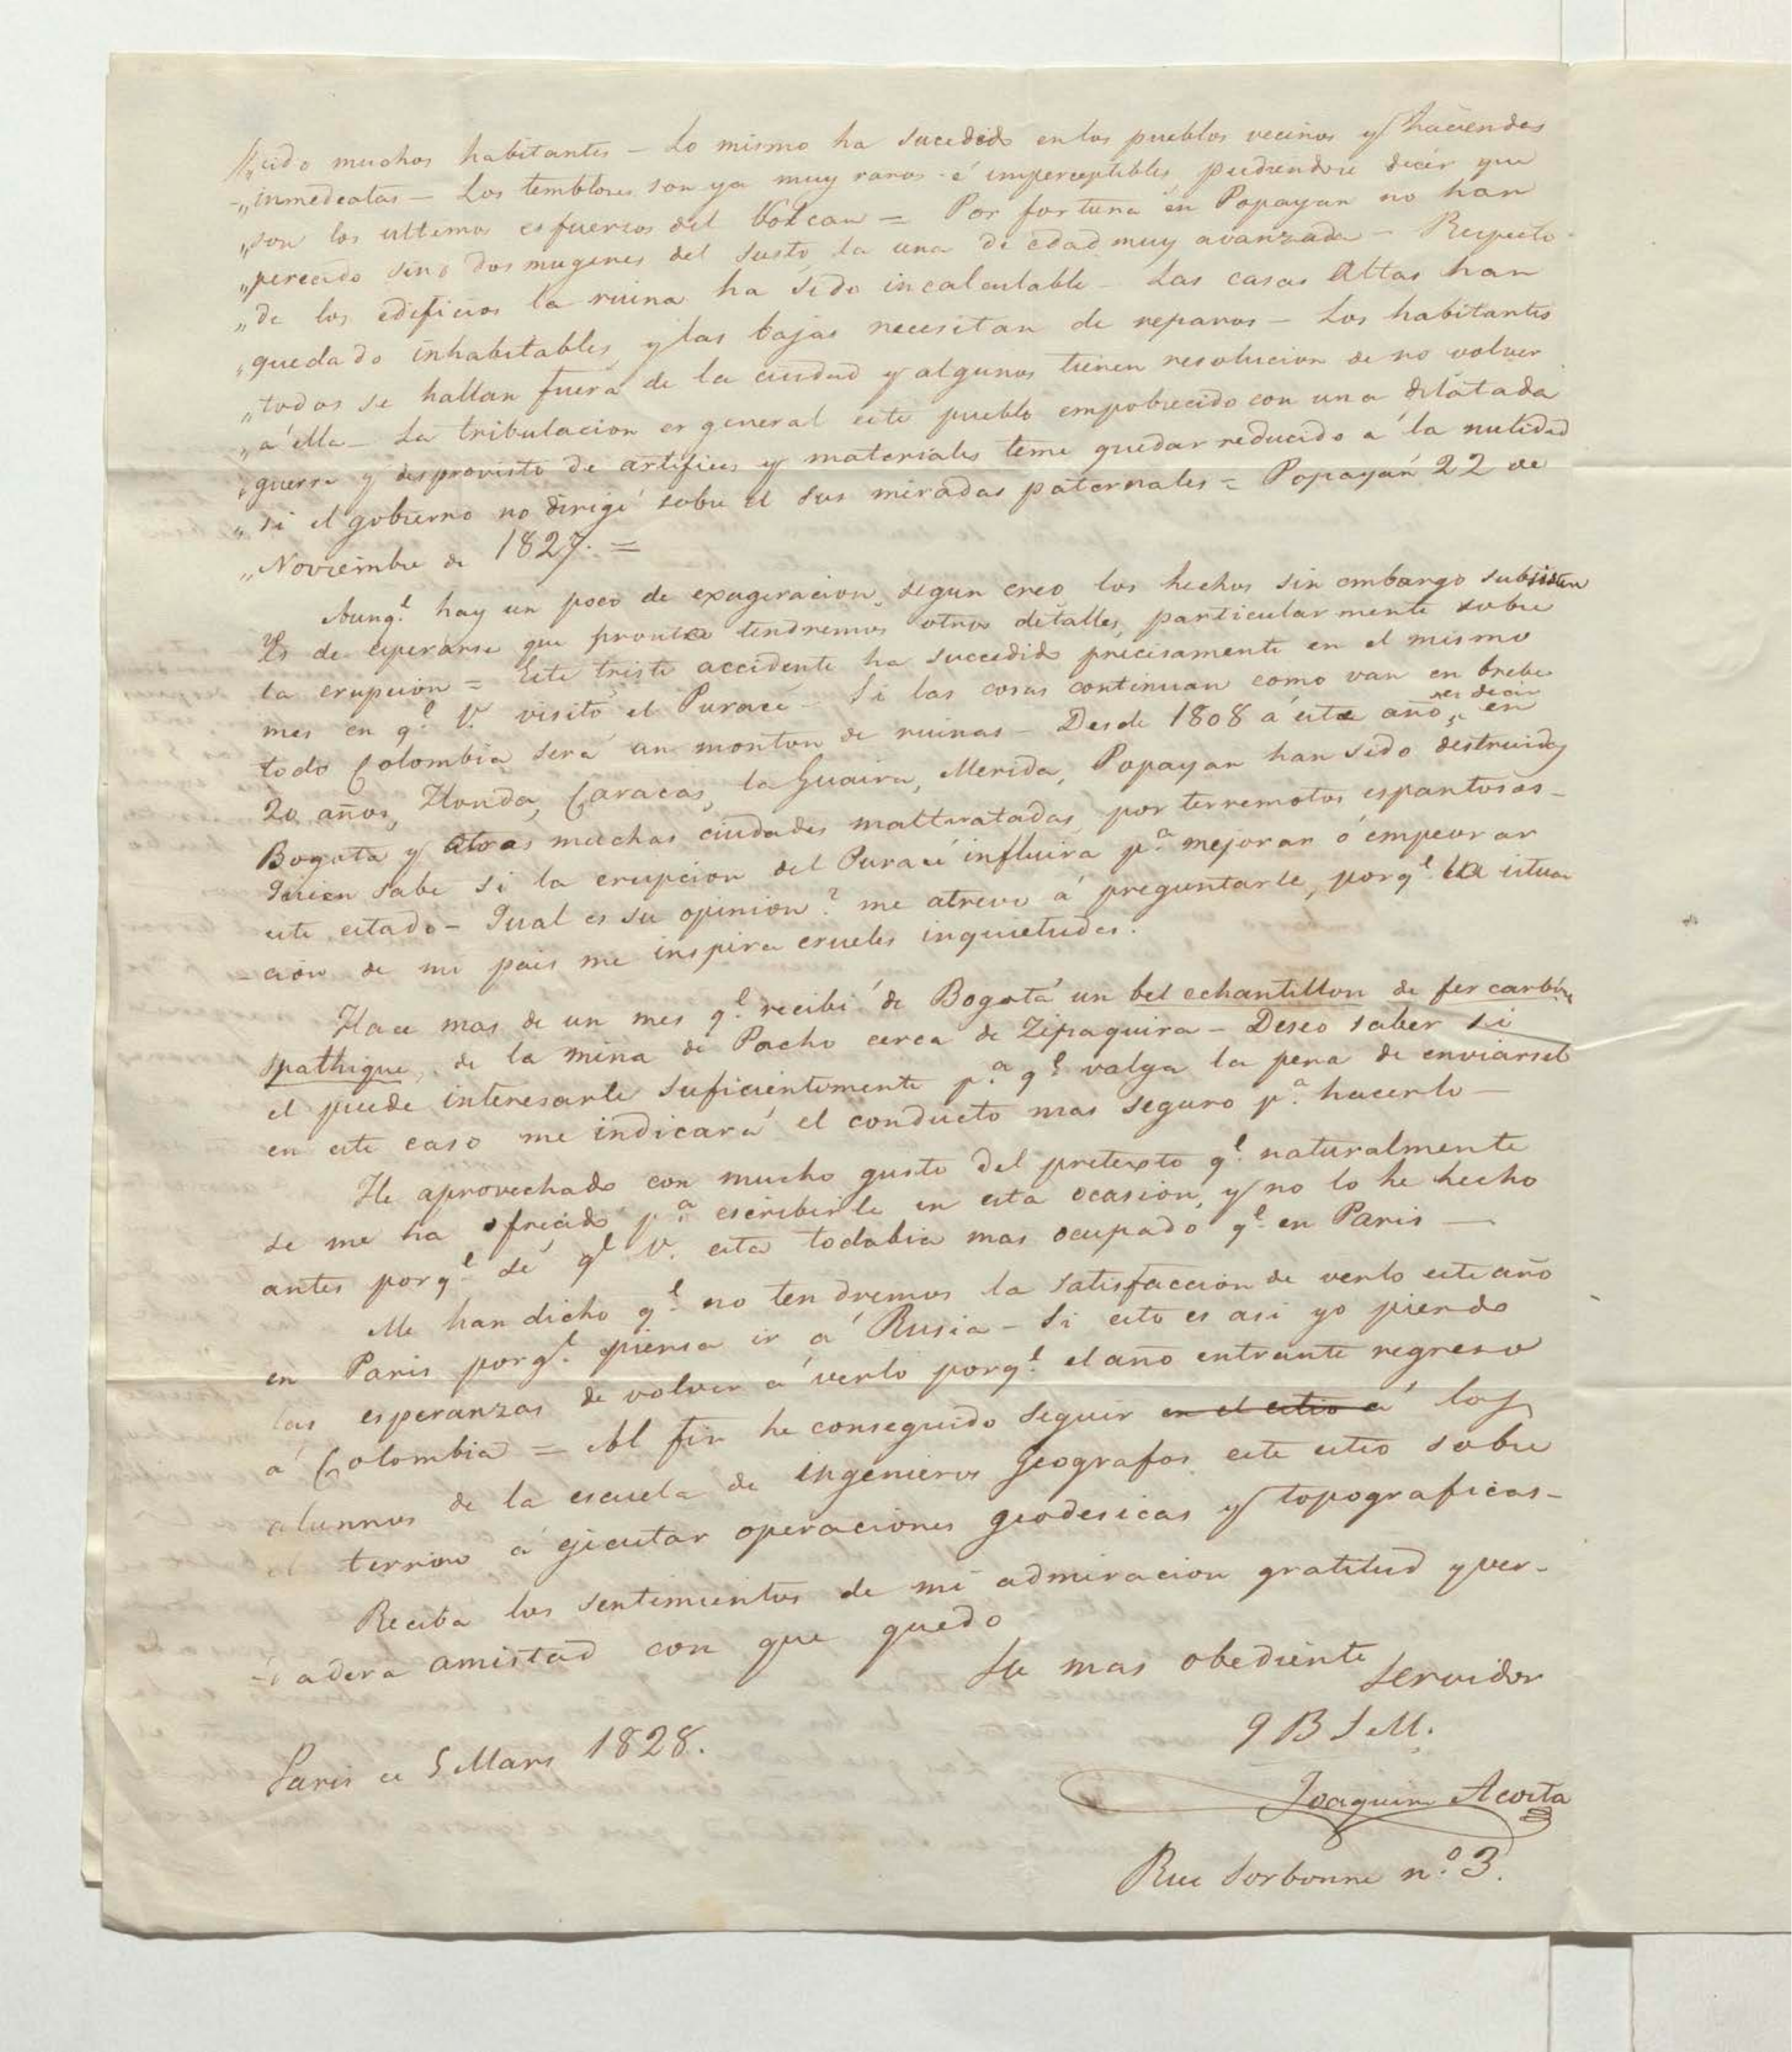 „cido muchos habitantes — Lo mismo ha sucedido en los pueblos vecinos y haciendas
„inmedeatas — Los temblores son ya muy raros é imperceptibles pudiendose decir que
„son los ultimos esfuerzos del Volcan = Por fortuna en Popayan no han
„perecido sino dos mugeres del susto, la una de edad muy avanzada — Respecto
„de los edificios la ruina ha sido incalculable — Las casas altas han
„quedado inhabitables, y las bajas necesitan de reparos — Los habitantes
„todos se hallan fuera de la ciudad y algunos tienen resolucion de no volver
„a ella — La tribulacion es general este pueblo empobrecido con una dilatada
„guerra y desprovisto de artifices y materiales teme quedar reducido á la nulidad
„si el gobierno no dirige sobre el sus miradas paternales = Popayán 22 de
„Noviembre de 1827. =
Aunq.e hay un poco de exageracion, segun creo, los hechos sin embargo subsisten
Es de esperarse que pronto tendremos otros detalles, particularmente sobre
la erupcion = Este triste accidente ha succedido precisamente en el mismo
mes en q.e V. visitó el Puracé — Si las cosas continuan como van en brebe
todo Colombia será un monton de ruinas — Desde 1808 á este año, es decir en
20 años, Honda, Caracas, la Guaira, Merida, Popayan han sido destruidos
Bogota y otras muchas ciudades maltratadas, por terremotos espantosos —
Quien sabe si la erupcion del Puracé influira p.a mejorar ó empeorar
este estado — Qual es su opinion? me atrevo á preguntarle, porq.e la situa
-cion de mi pais me inspira crueles inquietudes.
Hace mas de un mes q.e recibi de Bogotá un bel echantillon de fer carbon
spathique, de la mina de Pacho cerca de Zipaquira — Deseo saber si
el puede interesarle suficientemente p.a q.e valga la pena de enviarsel
en este caso me indicará el conducto mas seguro p.a hacerlo —
He aprovechado con mucho gusto del pretexto q.e naturalmente
se me ha ofrecido p.a escribirle en esta ocasion, y no lo he hecho
antes porq.e sé q.e V. esta todabia mas ocupado q.e en Paris —
Me han dicho q.e no tendremos la satisfaccion de verlo este año
en Paris porq.e piensa ir á Rusia — Si esto es asi yo pierdo
las esperanzas de volver á verlo porq.e el año entrante regreso
á Colombia = Al fin he conseguido seguir en el estio á los
alunnos de la escuela de ingenieros Geografos este estio sobre
el terrino á ejecutar operaciones geodesicas y topograficas —
Reciba los sentimientos de mi admiracion gratitud y ver-
-dadera amistad con que quedo
Su mas obediente servidor
q B S M.
Paris ce 5 Mars 1828.
Joaquin Acosta
Rue Sorbonne n.o 3.